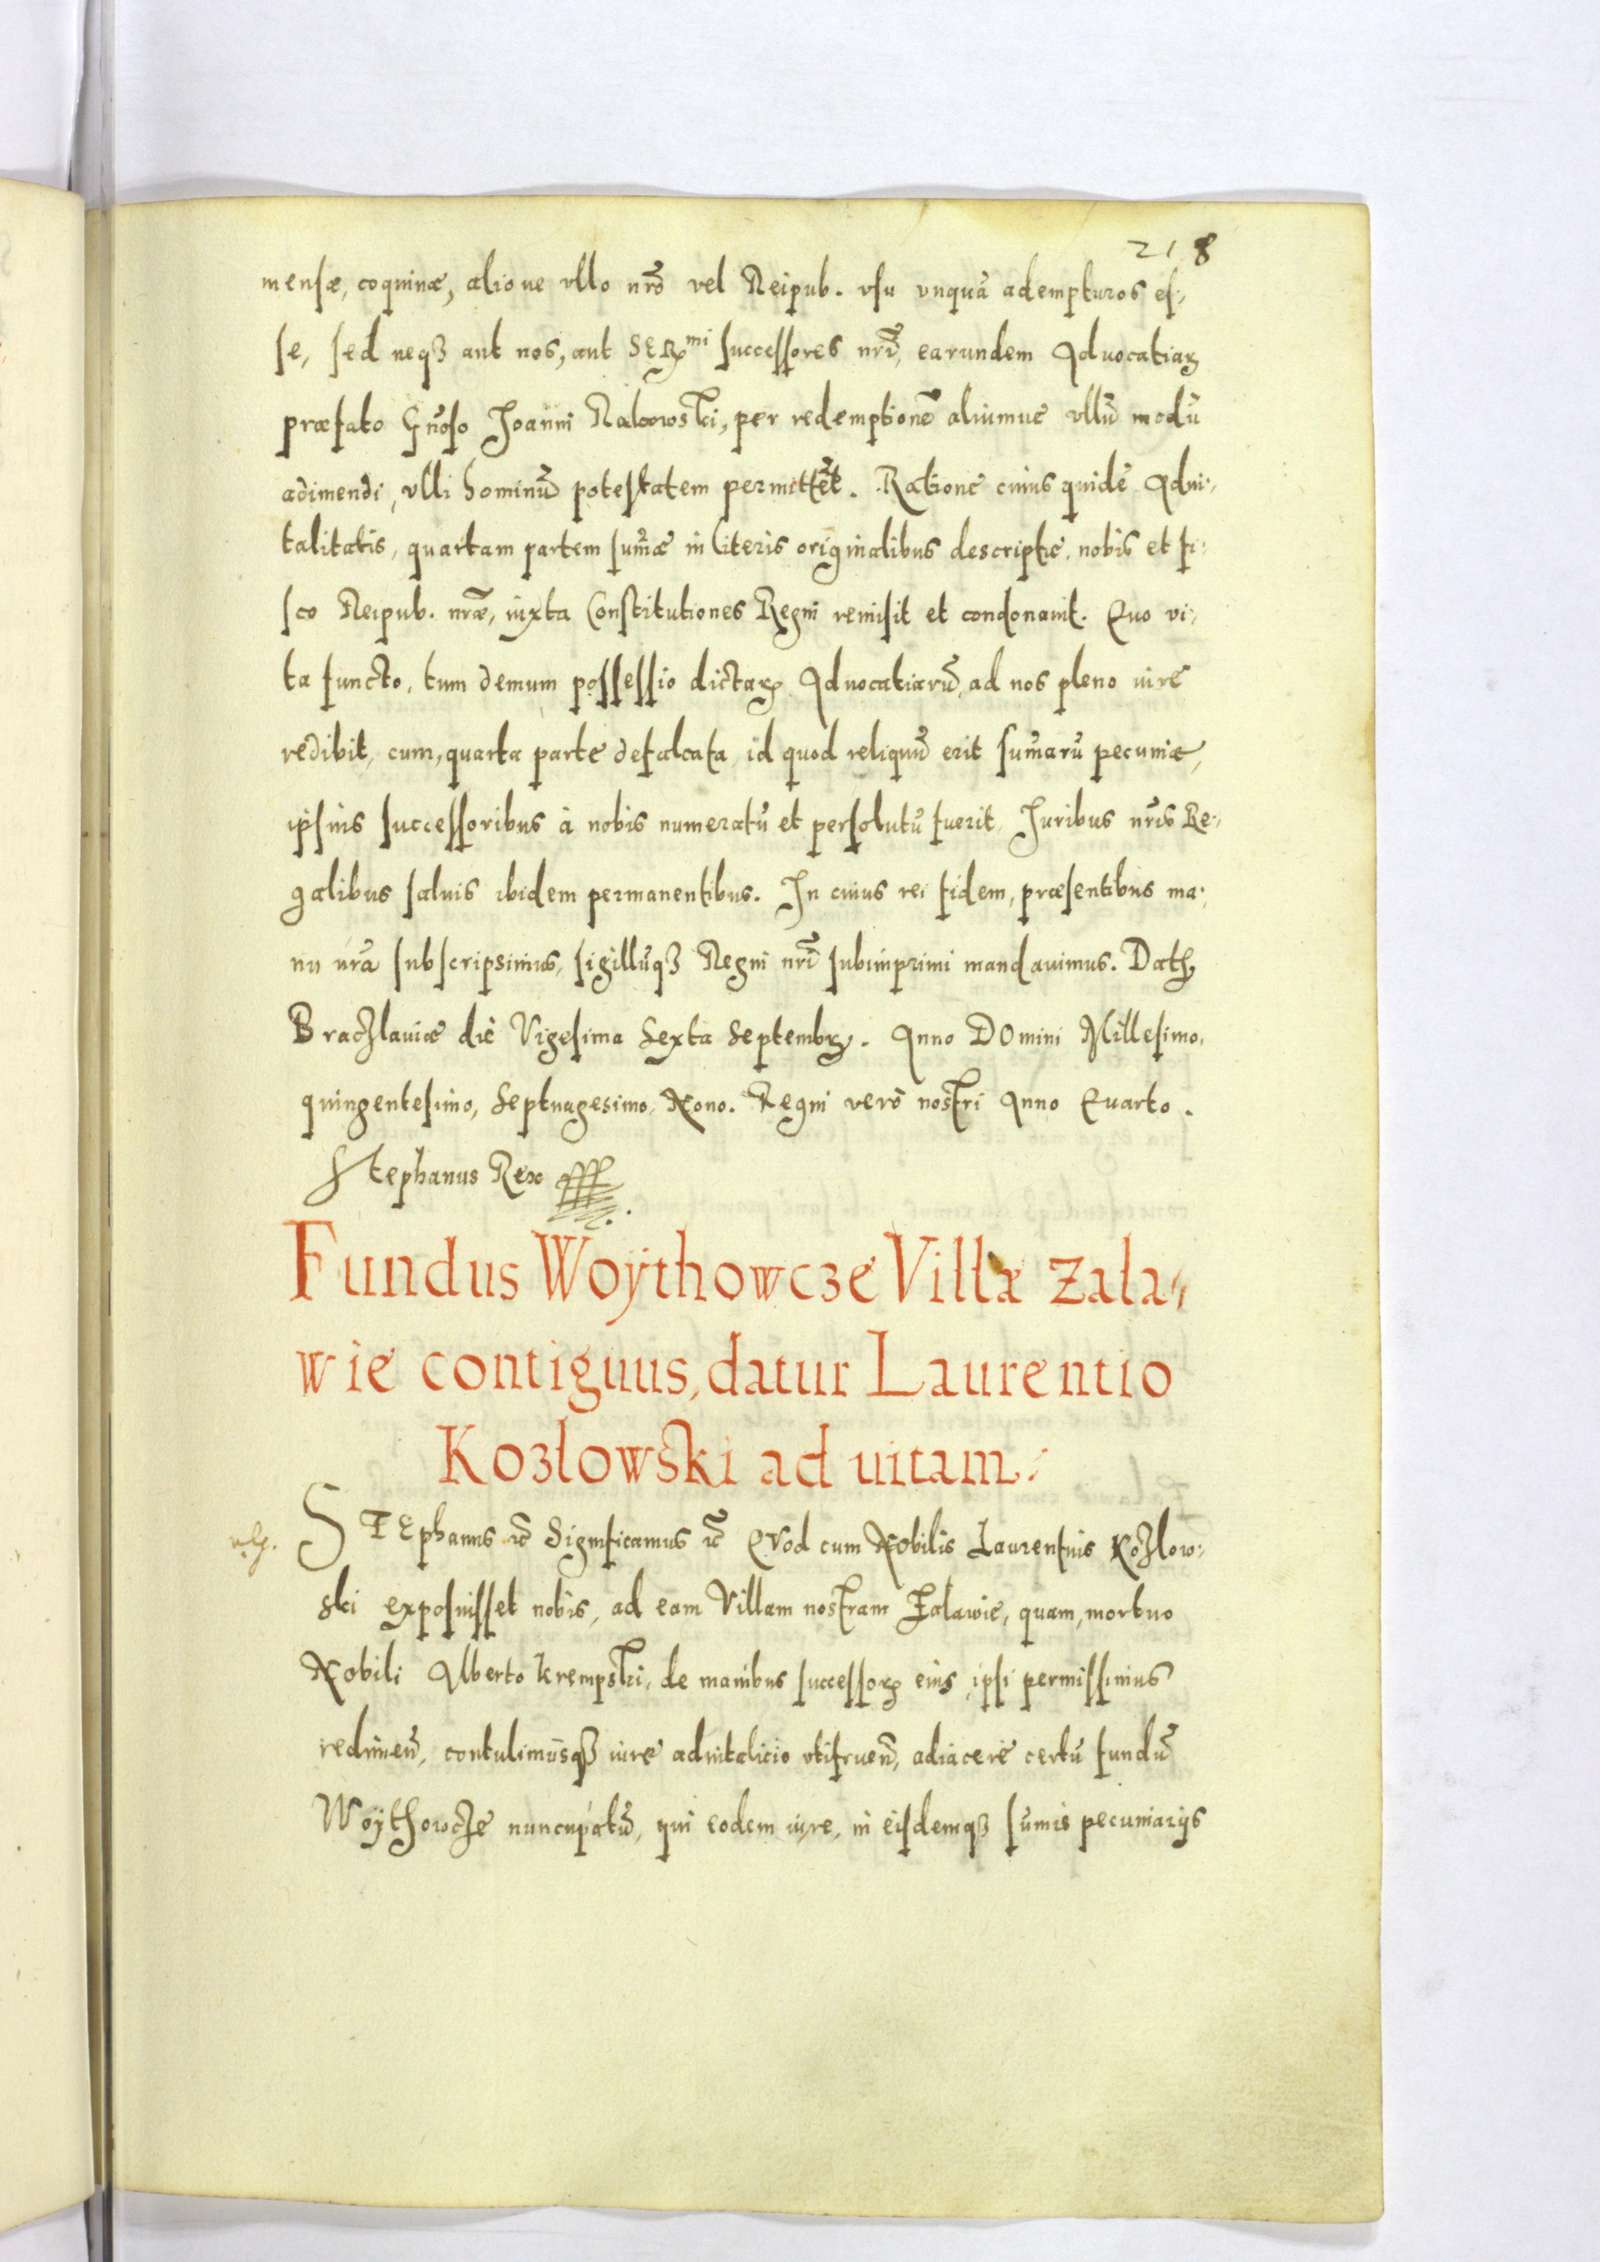 218
mensæ, coquinæ, alio ue vllo nr̃o vel Reipub. vsu vnquā adempturos es-
se, sed neqꝫ aut nos, aut SERmi successores nr̃i, earundem Aduocatiaꝝ
præfato Gñoso Joanni Rakowski, per redemptionē aliumue vllū modū
adimendi, vlli hominū potestatem permittēt. Ratione cuius quidē Adui-
talitatis, quartam partem sum̃æ in literis originalibus descriptæ, nobis et fi-
sco Reipub. nr̃æ, iuxta Constitutiones Regni remisit et condonauit. Quo vi-
ta functo, tum demum possessio dictaꝝ Aduocatiarū, ad nos pleno iure
redibit, cum, quarta parte defalcata, id quod reliquū erit sum̃arū pecuniæ,
ipsius successoribus à nobis numeratū et persolutū fuerit, Juribus nr̃is Re-
galibus saluis ibidem permanentibus. In cuius rei fidem, præsentibus ma-
nu nr̃a subscripsimus, sigillūqꝫ Regni nr̃i subimprimi mandauimus. Datꝫ
Braczlauiæ die Vigesima Sexta Septembꝝ. Anno DOmini Millesimo,
quingentesimo, Septuagesimo, Nono. Regni verò nostri Anno Quarto.
Stephanus Rex
Fundus Woÿthowcze Villæ Zala-
wie contiguus, datur Laurentio
Kozlowski ad uitam.
STEphanus ꝛc̃ Significamus ꝛc̃ QVod cum Nobilis Laurentius Kozlow-
ski exposuisset nobis, ad eam Villam nostram Zalawie, quam, mortuo
Nobili Alberto Krempski, de manibus successoꝝ eius, ipsi permissimus
redimeñ, contulimusqꝫ iure aduitalicio vtifrueñ, adiacere certū fundū
Woÿthowcze nuncupatū, qui eodem iure, in eisdemqꝫ sum̃is pecuniarijs